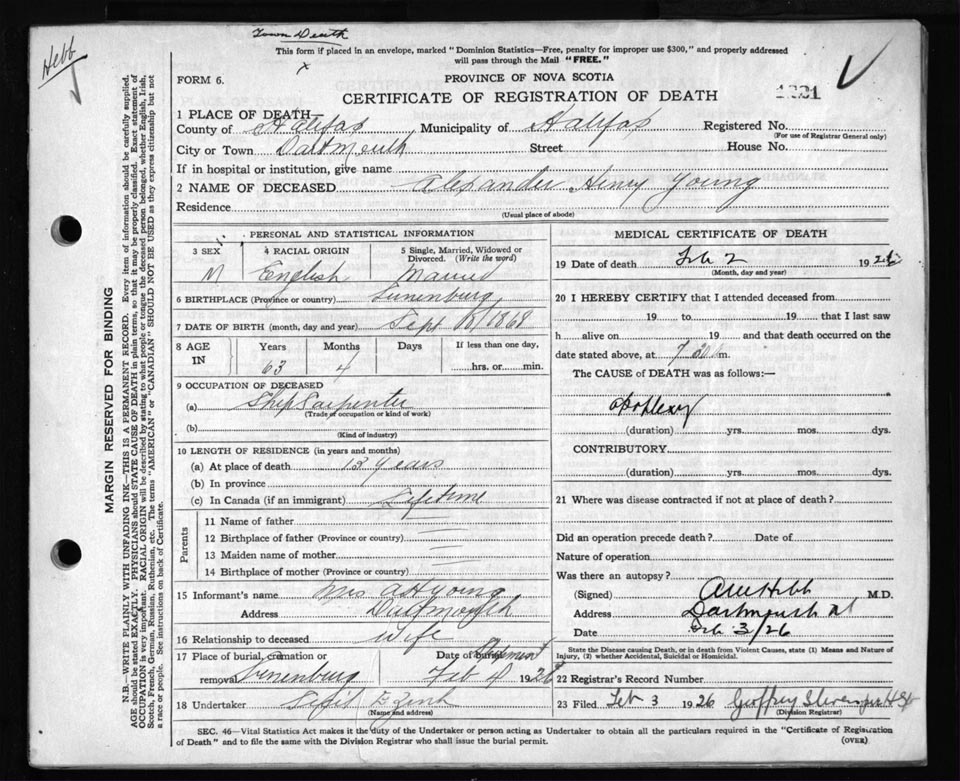 Hebb
Town Death
This form if placed in an envelope, marked "Dominion Statistics—Free, penalty for improper use $300," and properly addressed
will pass through the Mail "FREE."
x
FORM 6.
PROVINCE OF NOVA SCOTIA
CERTIFICATE OF REGISTRATION OF DEATH
1 PLACE OF DEATH
County of Halifax Municipality of Halifax Registered No.
(For use of Registrar General only)
City or Town Dartmouth Street House No.
If in hospital or institution, give name
2 NAME OF DECEASED Alexander Henry Young
Residence
(Usual place of abode)
PERSONAL AND STATISTICAL INFORMATION
3 SEX 4 RACIAL ORIGIN 5 Single, Married, Widowed or
Divorced. (Write the word)
M English Married
6 BIRTHPLACE (Province or country) Lunenburg
7 DATE OF BIRTH (month, day and year) Sept
8 AGE IN Years Months Days If less than one day,
63 4 hrs. or min.
9 OCCUPATION OF DECEASED
(a) Ship Carpenter
(Trade of occupation or kind of work)
(b)
(Kind of industry)
10 LENGTH OF RESIDENCE (in years and months)
(a) At place of death 13 years
(b) In province
(c) In Canada (if an immigrant) Lifetime
Parents
11 Name of father
12 Birthplace of father (Province or country)
13 Maiden name of mother
14 Birthplace of mother (Province or country)
15 Informant's name Mrs A H Young
Address Dartmouth
16 Relationship to deceased Wife
17 Place of burial, cremation or Date of burial
removal Lunenburg Feb 4 1926
18 Undertaker
(Name and address)
MEDICAL CERTIFICATE OF DEATH
19 Date of death Feb 2 1926
(Month, day and year)
20 I HEREBY CERTIFY that I attended deceased from
19 to 19 that I last saw
h alive on 19 and that death occurred on the
date stated above, at 7 30 m.
The CAUSE of DEATH was as follows:—
Apoplexy
(duration) yrs. mos. dys.
CONTRIBUTORY
(duration) yrs. mos. dys.
21 Where was disease contracted if not at place of death?
Did an operation precede death? Date of
Nature of operation
Was there an autopsy?
(Signed) Hebb M.D.
Address Dartmouth
Date Feb 3/26
State the Disease causing Death, or in death from Violent Causes, state (1) Means and Nature
of Injury, (2) whether Accidental, Suicidal or Homicidal.
22 Registrar's Record Number
23 Filed Feb 3 1926 Geoffrey
(Division Registrar)
SEC. 46—Vital Statistics Act makes it the duty of the Undertaker or person acting as Undertaker to obtain all the particulars required in the "Certificate of Registration
of Death" and to file the same with the Division Registrar who shall issue the burial permit.
(OVER)
MARGIN RESERVED FOR BINDING
N.B.—WRITE PLAINLY WITH UNFADING INK—THIS IS A PERMANENT RECORD. Every item of information should be carefully supplied.
AGE should be stated EXACTLY. PHYSICIANS should STATE CAUSE OF DEATH in plain terms, so that it may be properly classified. Exact statement of
OCCUPATION is very important. RACIAL ORIGIN will be described by stating to what people or tongue the deceased person belonged, whether English, Irish,
Scotch, French, German, Russian, Ruthenian, etc. The terms "AMERICAN" or "CANADIAN" SHOULD NOT BE USED as they express citizenship but not
a race or people. See instructions on back of Certificate.